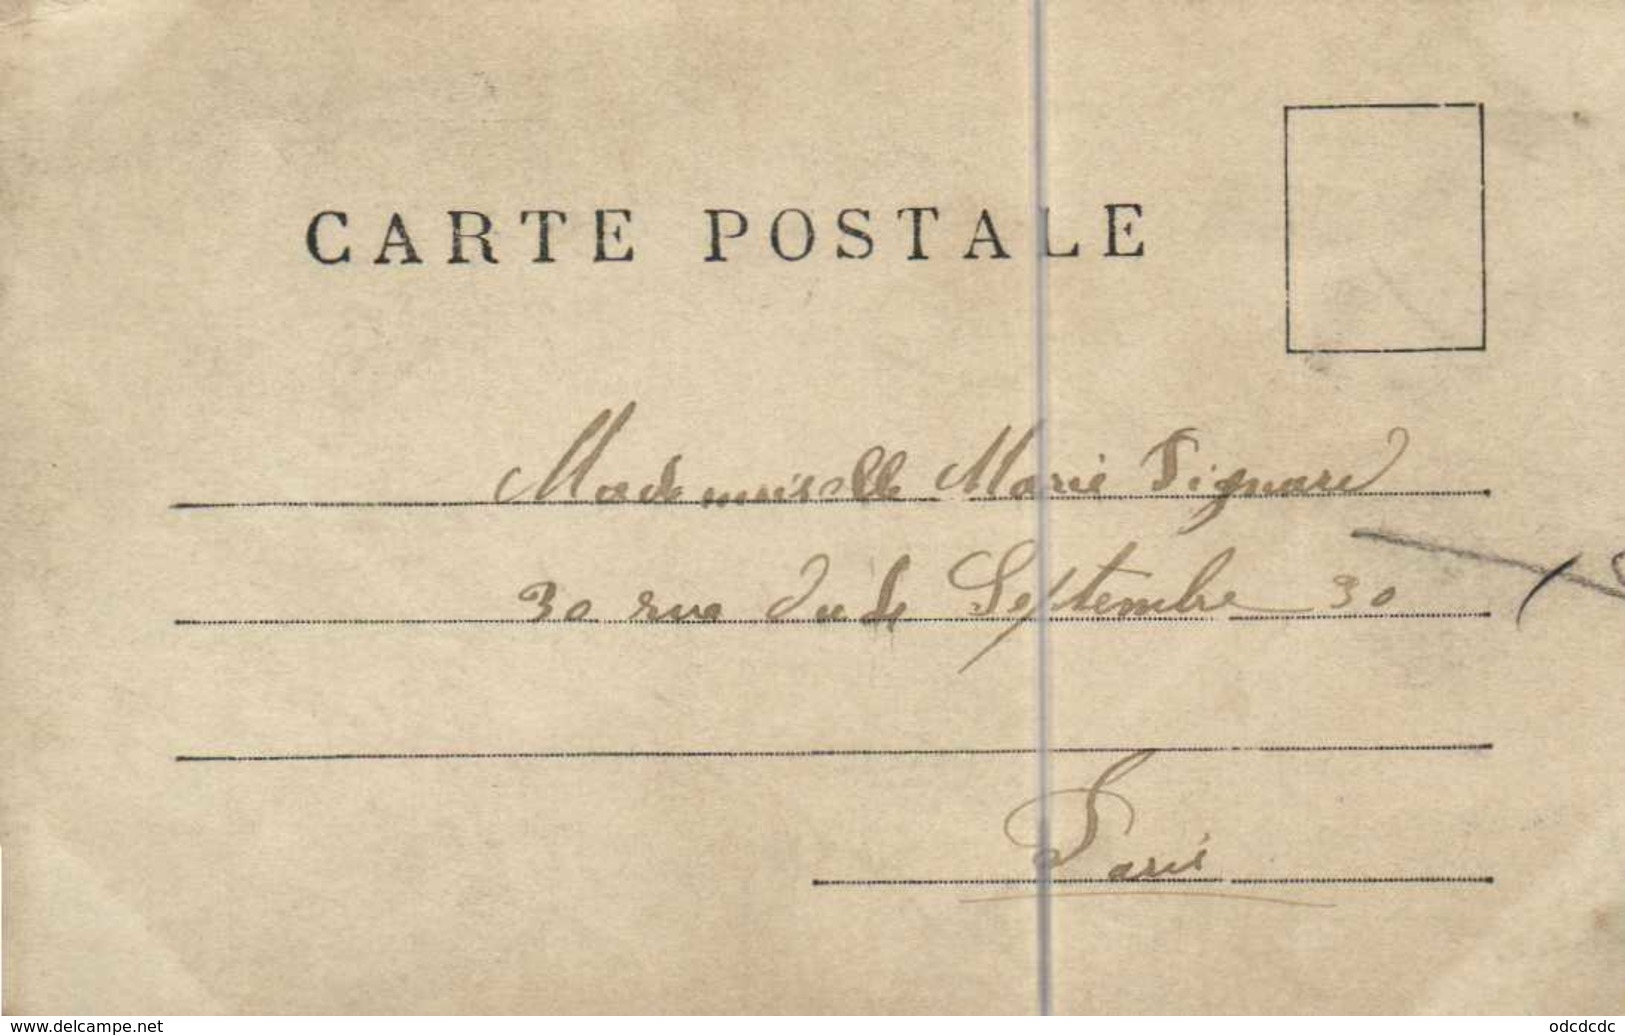 CARTE POSTALE
Mademoiselle Marie Pignard
30 rue du 4 Septembre 30
Paris
www.delcampe.net
odcdcdc